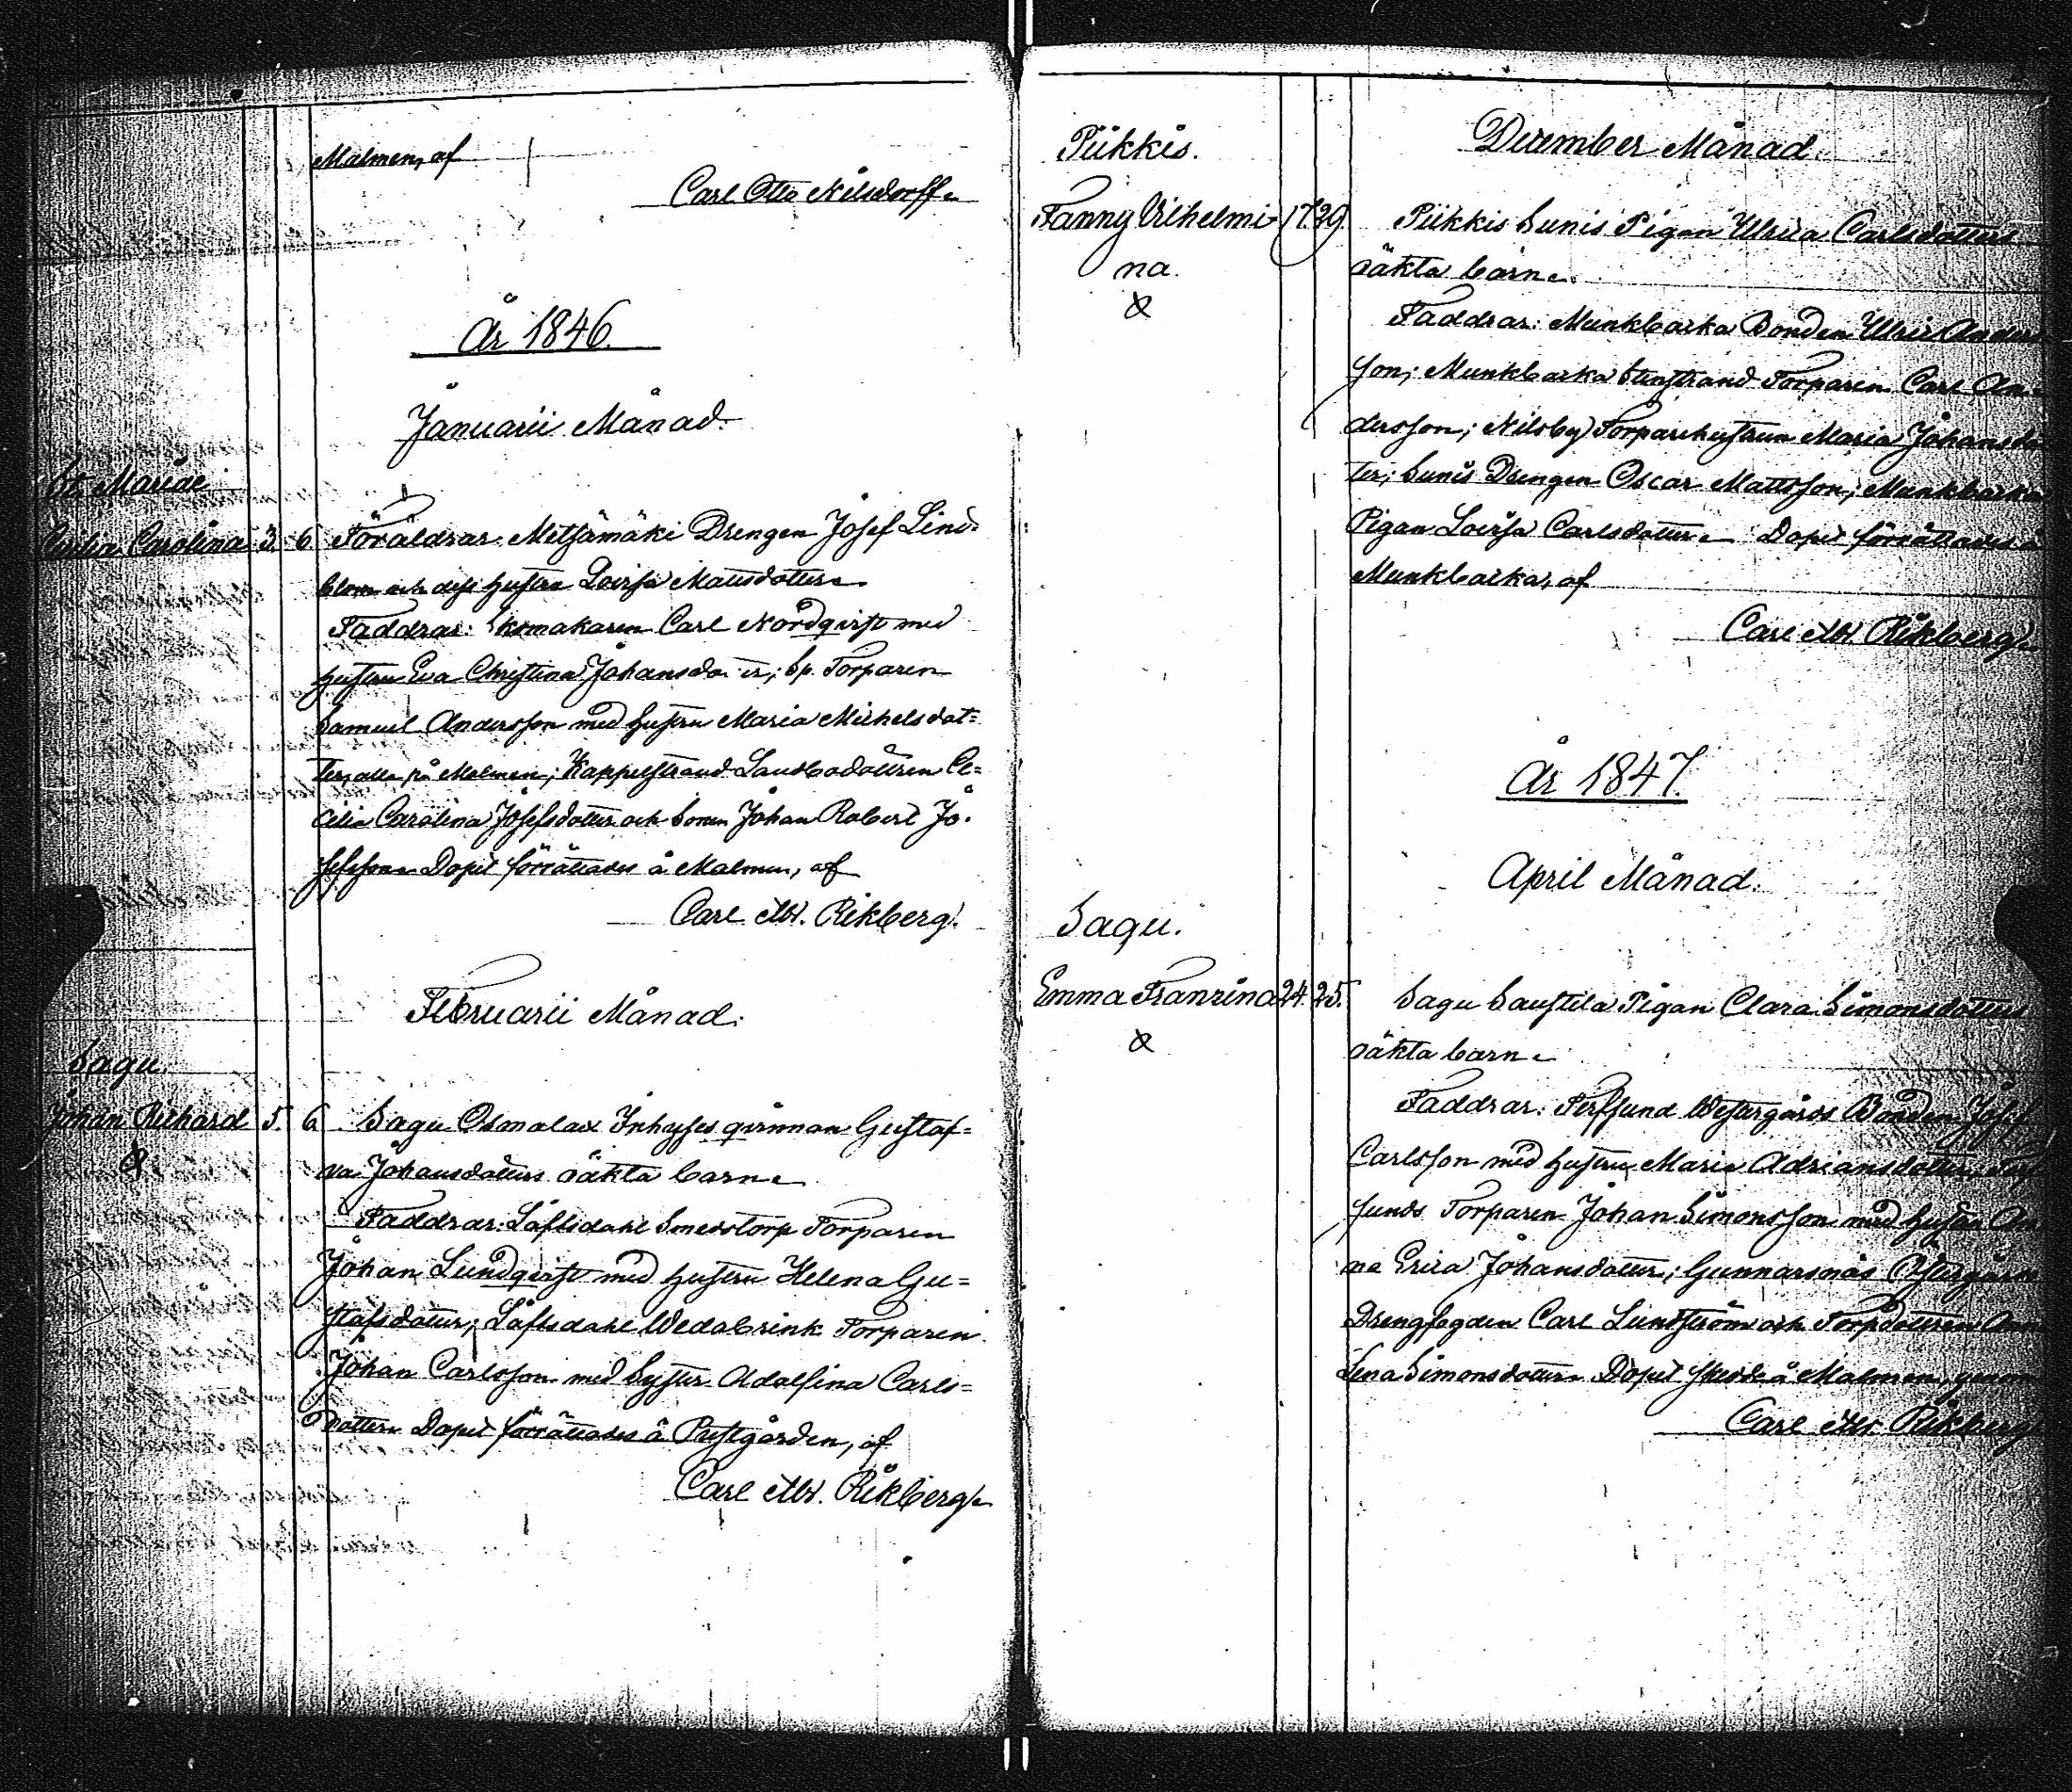 Malmen, af
Carl Otto Nilsdorff.
År 1846.
Januarii Månad.
St. Mariæ
Cecilia Carolina 3. 6. Föräldrar: Metsämäki Drengen Josef Lind-
blom och dess hustru Lovisa Mattsdotter.
Faddrar: Skomakaren Carl Nordqvist med
hustru Eva Christina Johansdotter; Sp. Torparen
Samuel Andersson med hustru Maria Michelsdot-
ter, alla på Malmen; Kappelstrand Landbodottren Ce-
cilia Carolina Josefsdotter och Sonen Johan Robert Jo-
sefsson. Dopet förrättades å Malmen, af
Carl Ad. Rikberg.
Februarii Månad.
Sagu.
Johan Richard 5. 6. Sagu Osmalax Inhyses qvinnan Gustaf-
va Johansdotters oäkta barn.
Faddrar: Låfsdahl Smedstorp Torparen
Johan Lundqvist med hustru Helena Gu-
stafsdotter; Låfsdahl Wedabrink Torparen
Johan Carlsson med Syster Adolfina Carls-
dotter. Dopet förrättades å Prestgården, af
Carl Ad. Rikberg.
Piikkis. December Månad.
Fanny Vilhelmi- 17. 29. Piikkis Sunis Pigan Ulrica Carlsdotters
na. oäkta barn.
Faddrar: Munkbacka Bonden Ulric Anders
son; Munkbacka Stenstrand Torparen Carl An-
dersson; Nilsby Torparehustrun Maria Johansdo
ter; Sunis Drengen Oscar Mattsson; Munkbacka
Pigan Lovisa Carlsdotter. Dopet förrättades å
Munkbacka, af
Carl Ad. Rikberg.
År 1847.
April Månad.
Sagu.
Emma Franzina 24. 25. Sagu Saustila Pigan Clara Simonsdotters
oäkta barn.
Faddrar: Persund Westergårds Bonden Jos.
Carlsson med hustru Maria Adriansdotter;
sunds Torparen Johan Simonsson med hustru An
na Erica Johansdotter; Gunnarsnäs Östergårds
Drengfogden Carl Lundström och Torpdottren Ann
Lena Simonsdotter. Dopet skedde å Malmen, genom
Carl Ad. Rikberg